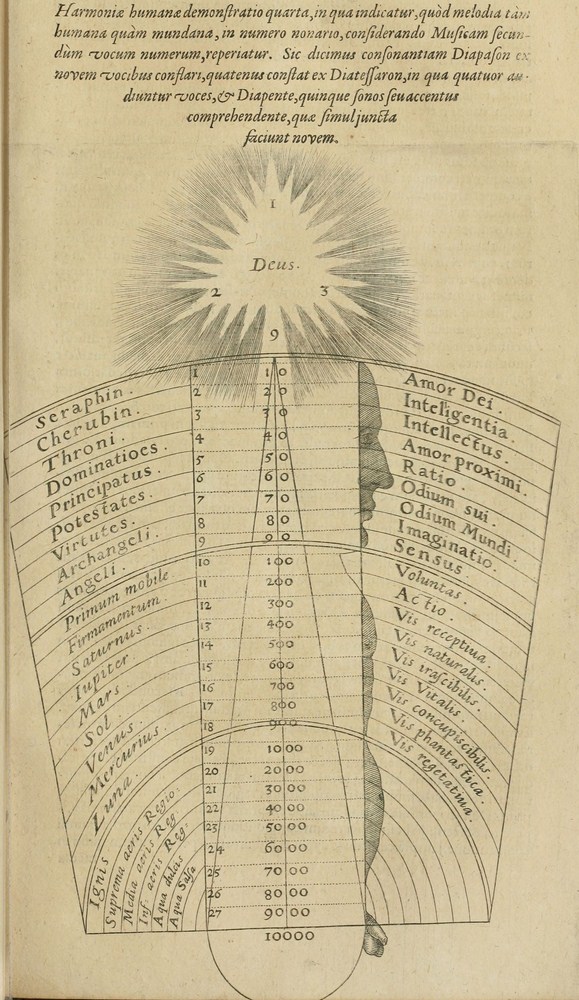 Harmoniæ humanæ demonſtratio quarta, in qua indicatur, quòd melodia tàm
humana quàm mundana, in numero nonario, conſiderando Muſicam ſecun-
dùm vocum numerum, reperiatur. Sic dicimus conſonantiam Diapaſon ex
novem vocibus conflari, quatenus conſtat ex Diateſſaron, in qua quatuor au-
diuntur voces, & Diapente, quinque ſonos ſeu accentus
comprehendente, quæ ſimul juncta
faciunt novem.
1
Deus.
2 3
9
Seraphin. 1 10 Amor Dei.
Cherubin. 2 20 Inteligentia.
Throni. 3 30 Intellectus.
Dominatioes. 4 40 Amor proximi.
Principatus. 5 50 Ratio.
Potestates. 6 60 Odium sui.
Virtutes. 7 70 Odium Mundi.
Archangeli. 8 80 Imaginatio.
Angeli. 9 90 Sensus.
Primum mobile 10 100 Voluntas.
Firmamentum. 11 200 Actio.
Saturnus. 12 300 Vis receptiua.
Iupiter. 13 400 Vis naturalis.
Mars 14 500 Vis irascibilis.
Sol. 15 600 Vis Vitalis.
Venus. 16 700 Vis concupiscibilis.
Mercurius. 17 800 Vis phantastica.
Luna. 18 900 Vis vegetatiua.
Ignis 19 1000
Suprema aeris Regio. 20 2000
Media aeris Reg 21 3000
Inf. aeris Reg: 22 4000
Aqua dulcis 23 5000
Aqua Salsa 24 6000
25 7000
26 8000
27 9000
10000